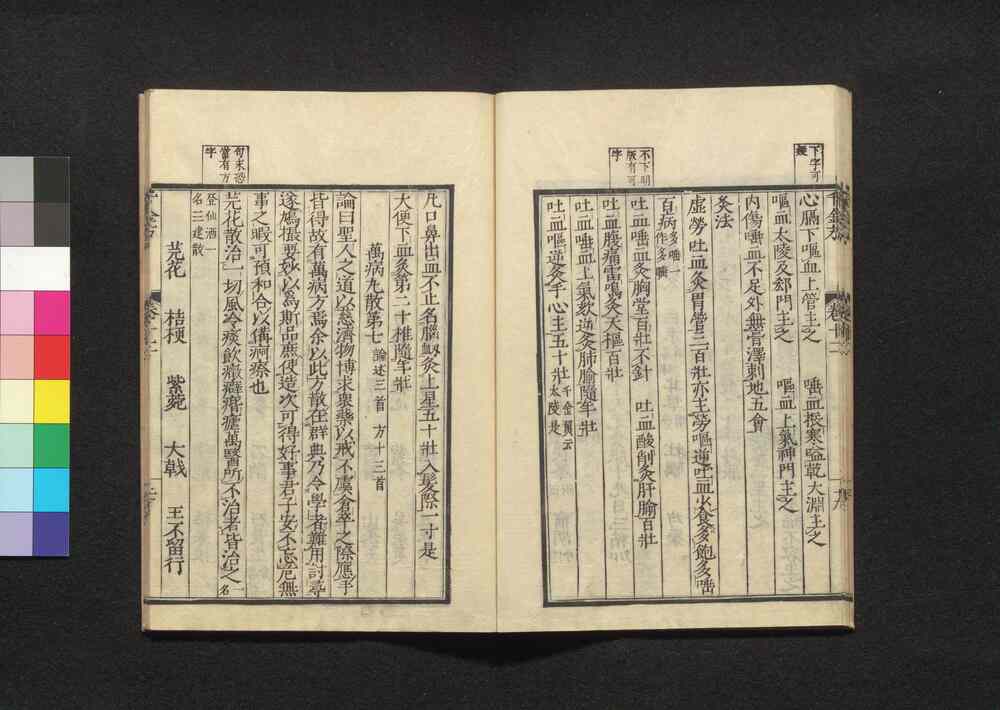 下字可
疑
心膈下嘔血上管主之　唾血振寒嗌乾太淵主之
嘔血太陵及郄門主之　嘔血上氣神門主之
内傷唾血不足外無膏澤刺地五會
灸法
虛勞吐血灸胃管三百壯亦主勞嘔逆吐血少食多飽多唾
百病多唾一
作多噦
不下明
版有可
字
吐血唾血灸胸堂百壯不針　吐血酸削灸肝腧百壯
吐血腹痛雷鳴灸天樞百壯
吐血唾血上氣欬逆灸肺腧隨年壯
吐血嘔逆灸手心主五十壯千金翼云
太陵是
句末恐
當有方
字
凡口鼻出血不止名腦衄灸上星五十壯入髮際一寸是
大便下血灸第二十椎隨年壯
萬病丸散第七論述三首　方十三首
論曰聖人之道以慈濟物博求衆藥以戒不虞倉卒之際應手
皆得故有萬病方焉余以此方散在群典乃令學者難用討尋
遂鳩撮要妙以爲斯品庶使造次可得好事君子安不忘危無
事之暇可預和合以備痾瘵也
芫花散治一切風冷痰飲癥癖痎瘧萬醫所不治者皆治之一名
登仙酒一
名三建散
芫花　桔梗　紫菀　大戟　王不留行